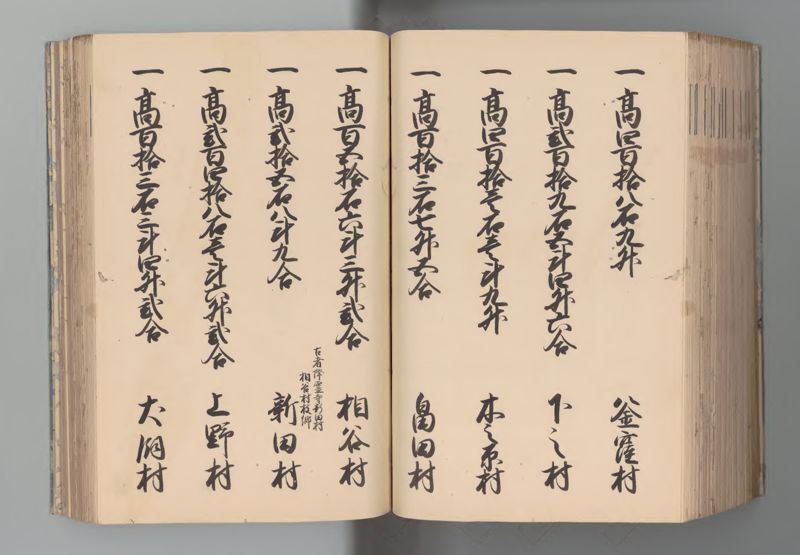 一 高四百拾八石九升 釜窪村
一 高弐百拾九石五斗四升六合 下之村
一 高四百拾壱石壱斗九升 木之京村
一 高百拾三石七升五合 畠田村
一 高百五拾石六斗三升弐合 相谷村
古者降霊寺新田村
相谷村枝郷
一 高弐拾五石八斗九合 新田村
一 高弐百四拾八石壱斗六升弐合 上野村
一 高百拾三石三斗四升弐合 大渕村